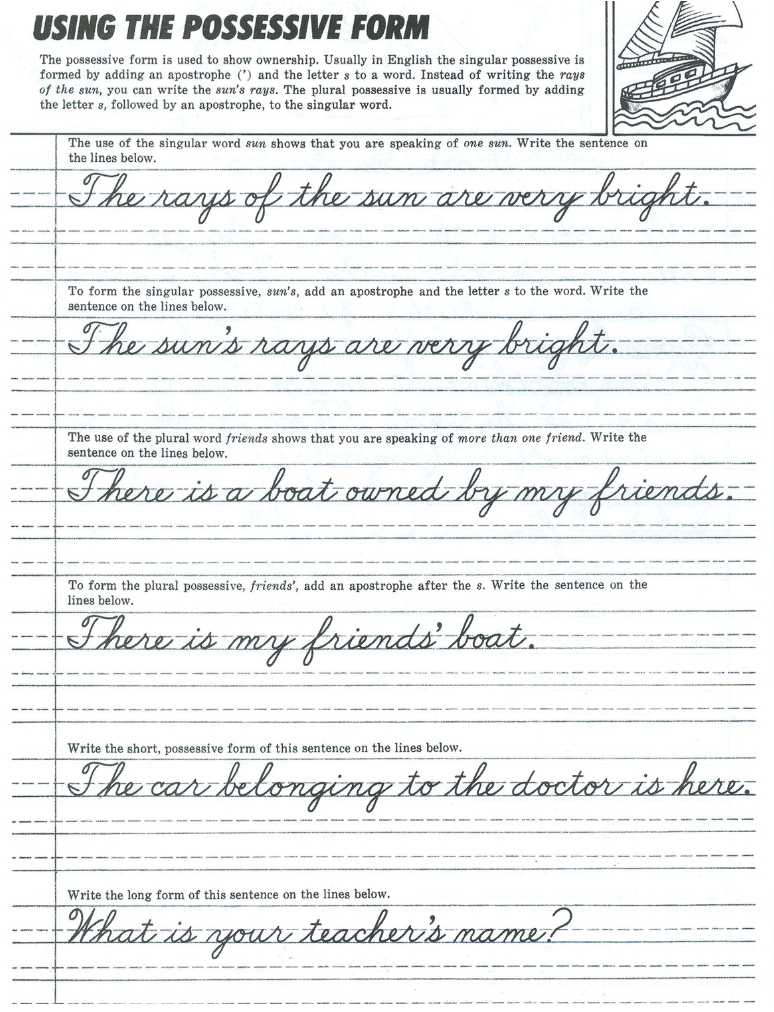 USING THE POSSESSIVE FORM
The possessive form is used to show ownership. Usually in English the singular possessive is
formed by adding an apostrophe (') and the letter s to a word. Instead of writing the rays
of the sun, you can write the sun's rays. The plural possessive is usually formed by adding
the letter s, followed by an apostrophe, to the singular word.
The use of the singular word sun shows that you are speaking of one sun. Write the sentence on
the lines below.
The rays of the sun are very bright.
To form the singular possessive, sun's, add an apostrophe and the letter s to the word. Write the
sentence on the lines below.
The sun's rays are very bright.
The use of the plural word friends shows that you are speaking of more than one friend. Write the
sentence on the lines below.
There is a boat owned by my friends.
To form the plural possessive, friends', add an apostrophe after the s. Write the sentence on the
lines below.
There is my friends' boat.
Write the short, possessive form of this sentence on the lines below.
The car belonging to the doctor is here.
Write the long form of this sentence on the lines below.
What is your teacher's name?